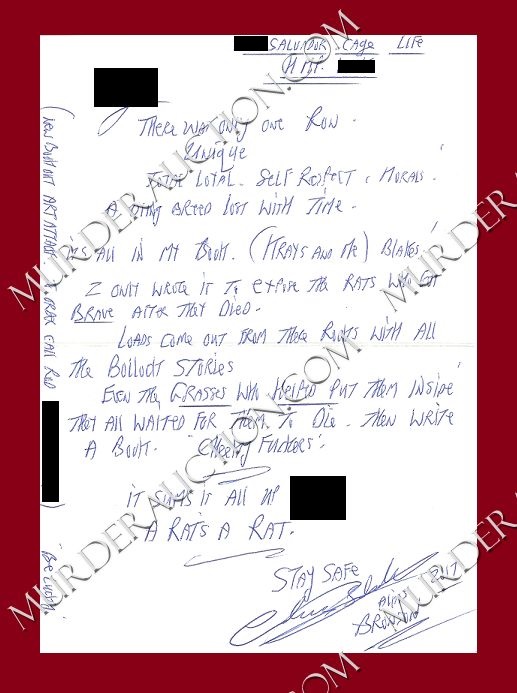 SALVADOR CAGE LIFE
HMP.
THERE WAS ONLY ONE RON.
UNIQUE
LOYAL. SELF RESPECT. MORALS.
A DYING BREED LOST WITH TIME.
ITS ALL IN MY BOOK. (KRAYS AND ME) BLAKES.
I ONLY WROTE IT TO EXPOSE THE RATS WHO GOT
BRAVE AFTER THEY DIED.
LOADS COME OUT FROM THERE WITH ALL
THE BOLLOCK STORIES
EVEN THE GRASSES WHO HELPED PUT THEM INSIDE
THEY ALL WAITED FOR THEM TO DIE. THEN WRITE
A BOOK. CHEEKY FUCKERS.
IT SUMS IT ALL UP
A RATS A RAT.
STAY SAFE
2017
BRONSON
(NEW BOOK OUT ART ATTACK. TO ORDER CALL ROD
)
MURDERAUCTION.COM
MURDERAUCTION.COM
MURDERAUCTION.COM
MURDERAUCTION.COM